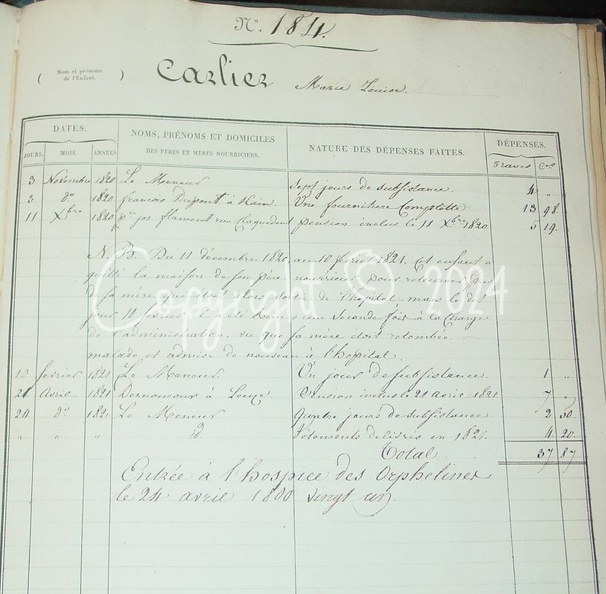 N.º 184.
( Nom et prénoms de l'Enfant. ) Carlier Marie Louise.
DATES. NOMS, PRÉNOMS ET DOMICILES DES PÈRES ET MÈRES NOURRICIERS. NATURE DES DÉPENSES FAITES. DÉPENSES.
JOURS. MOIS. ANNÉES Francs Ces
3 Novembre 1820 Le Meneur Sept jours de subsistance 4 "
3 do 1820 françois Dupont à Une fourniture Complette 13 98
11 Xbre 1820 jos flament rue pension inclus le 11 Xbre 1820 5 19
N.B. Du 11 décembre 1820 au 10 février 1821, Cet enfant a
quitté la maison de son père nourricier pour retourner
sa mère qui alors de l'hopital mais le dit
jour 10 février il fut remis une seconde fois à la Charge
de l'administration, vu que sa mère étoit retombée
malade et admise de nouveau à l'hopital.
10 février 1821 Le Meneur Un jour de subsistance 1 "
21 Avril 1821 à Pension inclus le 21 avril 1821 7 "
20 do 1821 Le Meneur jours de subsistance 2 50
" " " Vêtements délivrés en 4 20
Total 37 87
Entrée à l'hospice des Orphelines
le 24 avril 1800 vingt un
Copyright © 2024